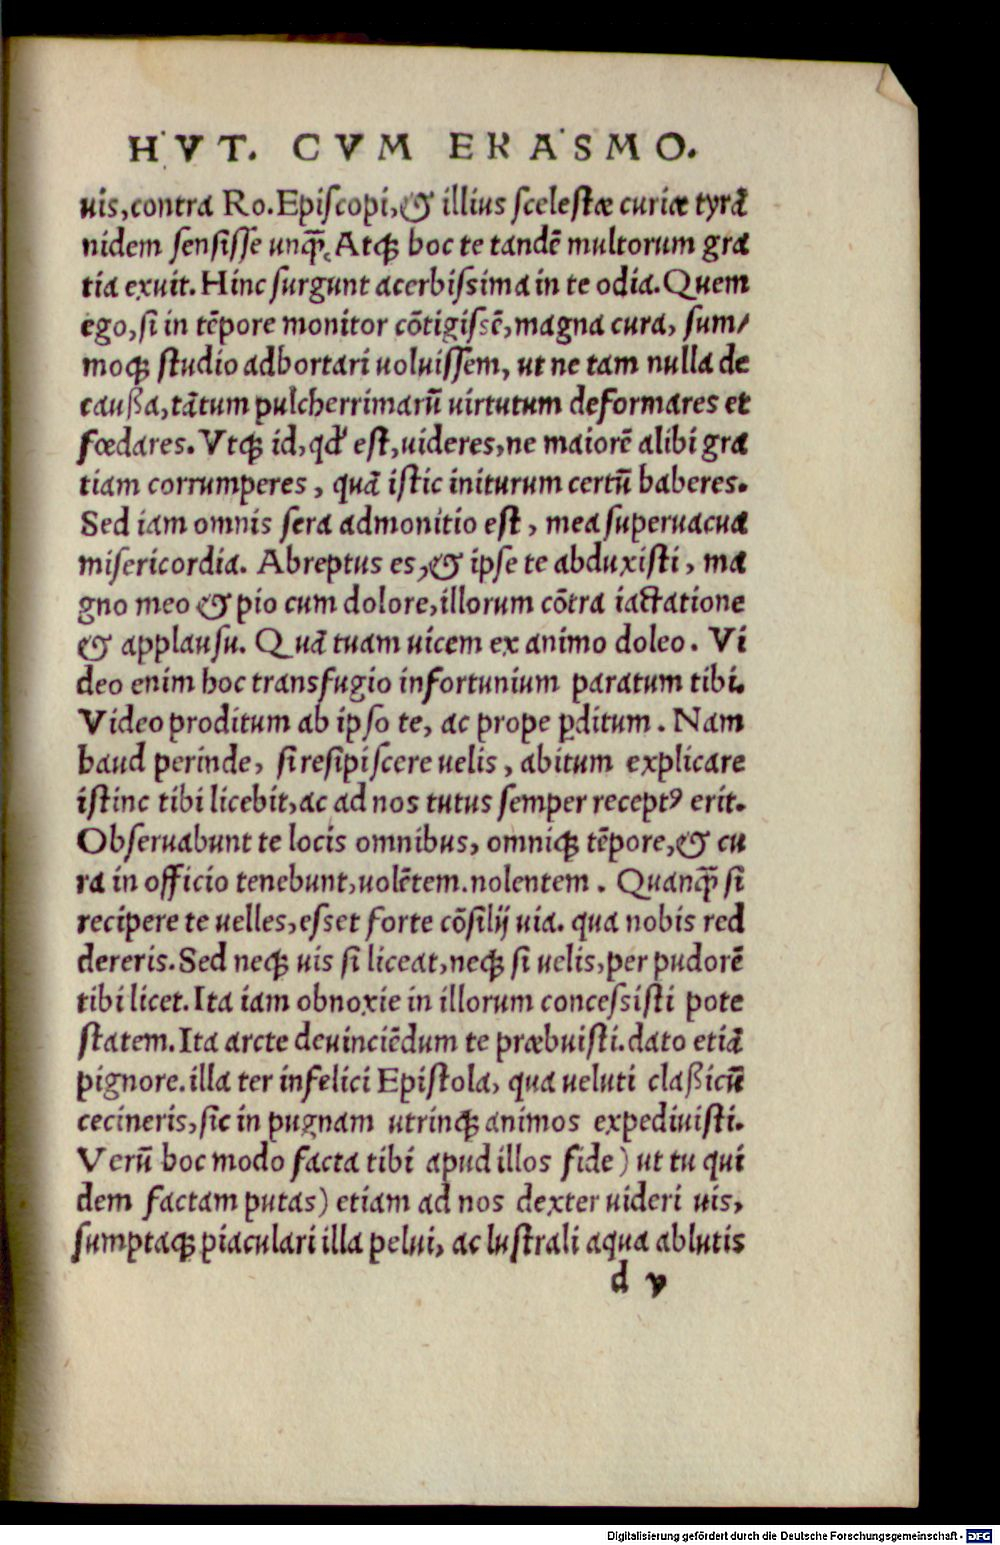 HVT. CVM ERASMO.
uis, contra Ro. Episcopi, & illius scelestæ curiæ tyrā
nidem sensisse unq̄. Atq; hoc te tandē multorum gra
tia exuit. Hinc surgunt acerbissima in te odia. Quem
ego, si in tēpore monitor cōtigissē, magna cura, sum/
moq; studio adhortari uoluissem, ut ne tam nulla de
caußa, tātum pulcherrimarū uirtutum deformares et
fœdares. Vtq; id, qd' est, uideres, ne maiorē alibi gra
tiam corrumperes, quā istic initurum certū haberes.
Sed iam omnis sera admonitio est, mea superuacua
misericordia. Abreptus es, & ipse te abduxisti, ma
gno meo & pio cum dolore, illorum cōtra iactatione
& applausu. Quā tuam uicem ex animo doleo. Vi
deo enim hoc transfugio infortunium paratum tibi.
Video proditum ab ipso te, ac prope ꝑditum. Nam
haud perinde, si resipiscere uelis, abitum explicare
istinc tibi licebit, ac ad nos tutus semper receptꝰ erit.
Obseruabunt te locis omnibus, omniq; tēpore, & cu
ra in officio tenebunt, uolētem. nolentem. Quanq̄ si
recipere te uelles, esset forte cōsilij uia. qua nobis red
dereris. Sed neq; uis si liceat, neq; si uelis, per pudorē
tibi licet. Ita iam obnoxie in illorum concessisti pote
statem. Ita arcte deuinciēdum te præbuisti. dato etiā
pignore. illa ter infelici Epistola, qua ueluti claßicū
cecineris, sic in pugnam utrinq; animos expediuisti.
Verū hoc modo facta tibi apud illos fide) ut tu qui
dem factam putas) etiam ad nos dexter uideri uis,
sumptaq; piaculari illa pelui, ac lustrali aqua ablutis
d v
Digitalisierung gefördert durch die Deutsche Forschungsgemeinschaft - DFG